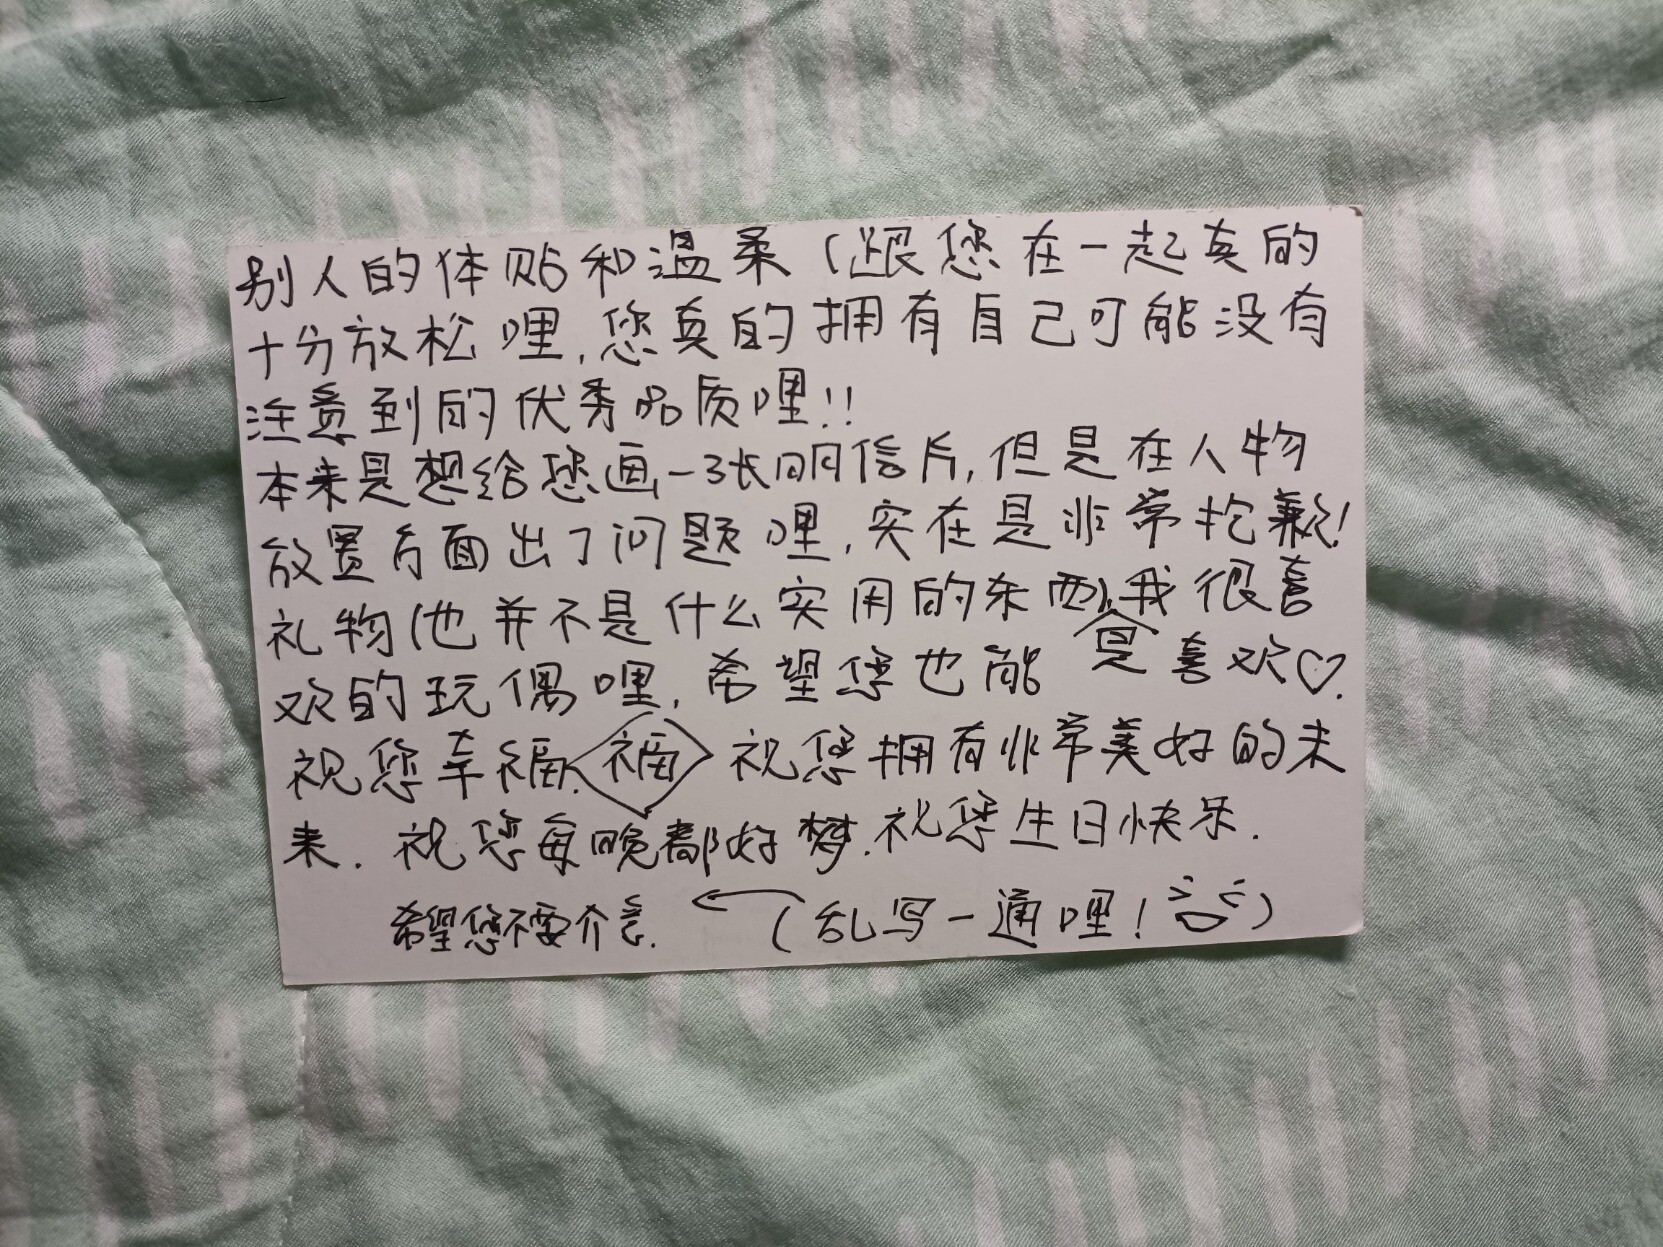 别人的体贴和温柔(跟您在一起真的
十分放松哩,您真的拥有自己可能没有
注意到的优秀品质哩!!
本来是想给您画一张明信片,但是在人物
放置方面出了问题哩,实在是非常抱歉!
礼物(也并不是什么实用的东西),是我很喜
欢的玩偶哩,希望您也能喜欢♡.
祝您幸福、福 祝您拥有非常美好的未
来. 祝您每晚都好梦.祝您生日快乐.
希望您不要介意. ← (乱写一通哩!)